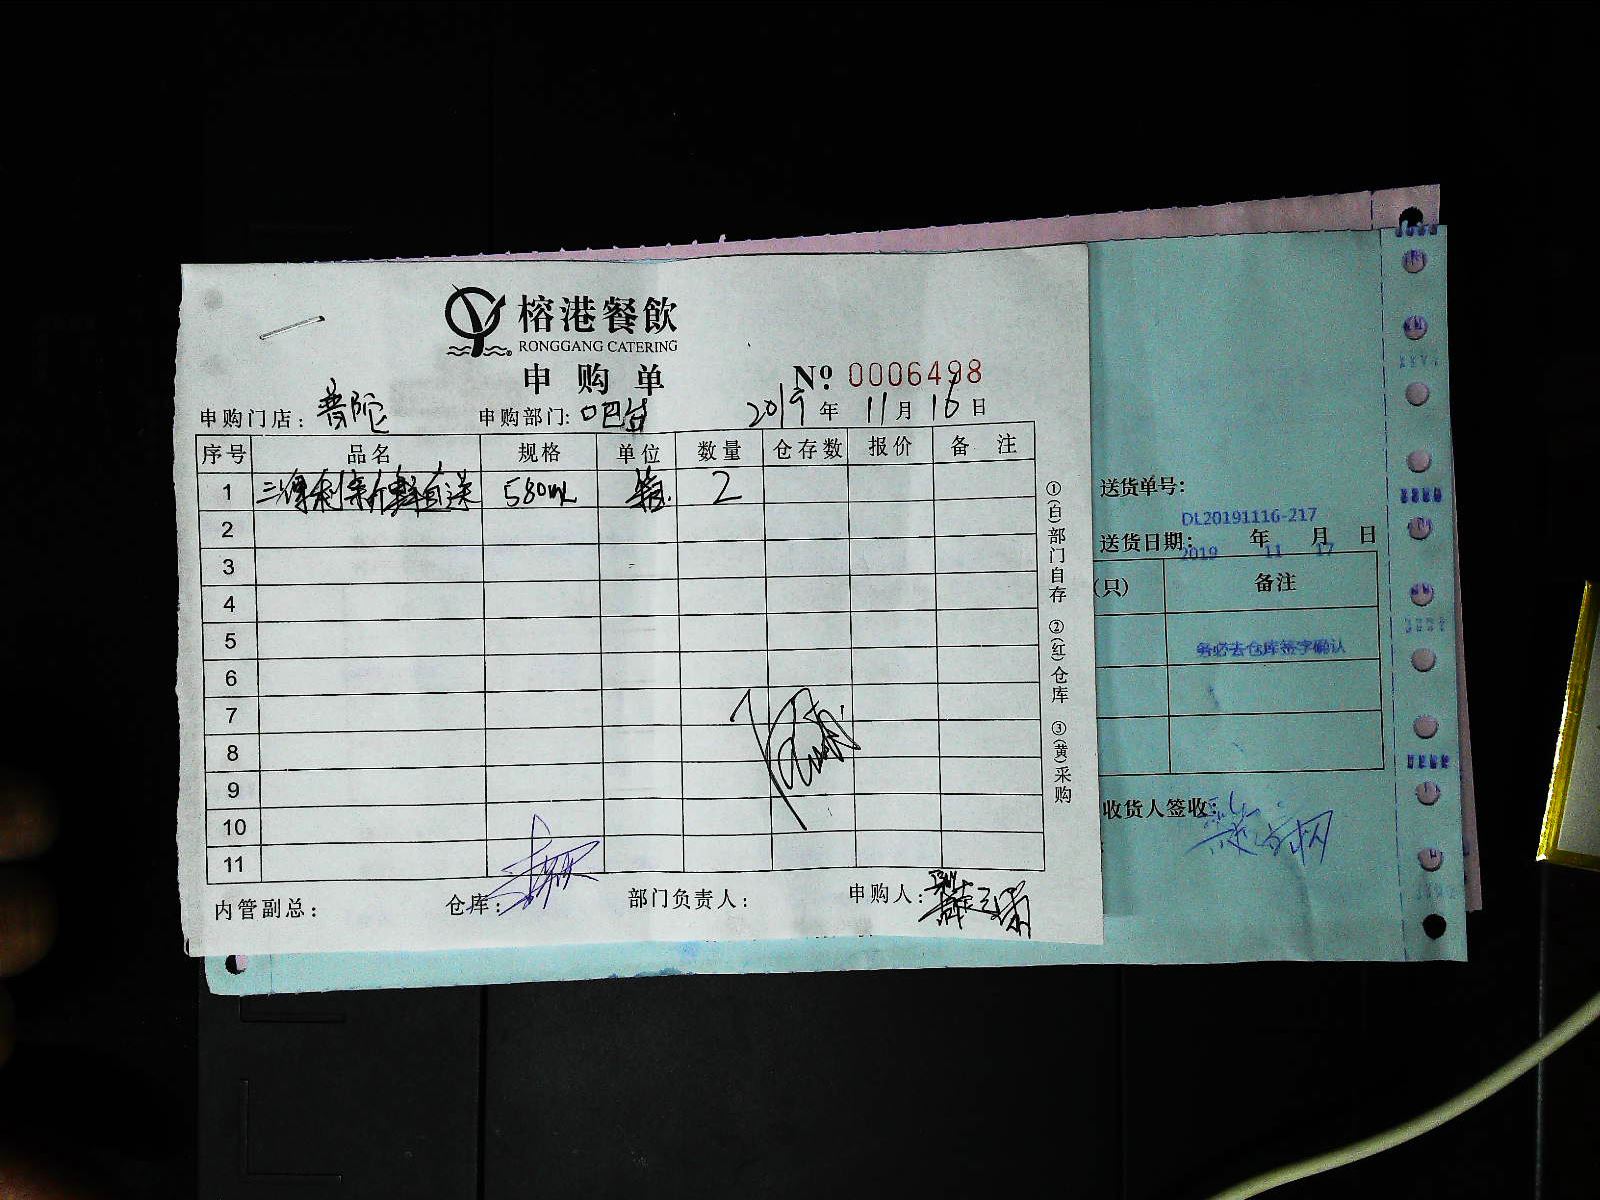 榕港餐飲
RONGGANG CATERING
申购单
Nº. 0006498
申购门店：普陀 申购部门：吧台 2019年11月16日
序号 品名 规格 单位 数量 仓存数 报价 备注
1 三得利 580ml 箱 2
2
3
4
5
6
7
8
9
10
11
内管副总： 仓库： 部门负责人： 申购人：
①(白)部门自存 ②(红)仓库 ③(黄)采购
送货单号：
DL20191116-217
送货日期： 2019年11月17日
(只) 备注
务必去仓库签字确认
收货人签收：